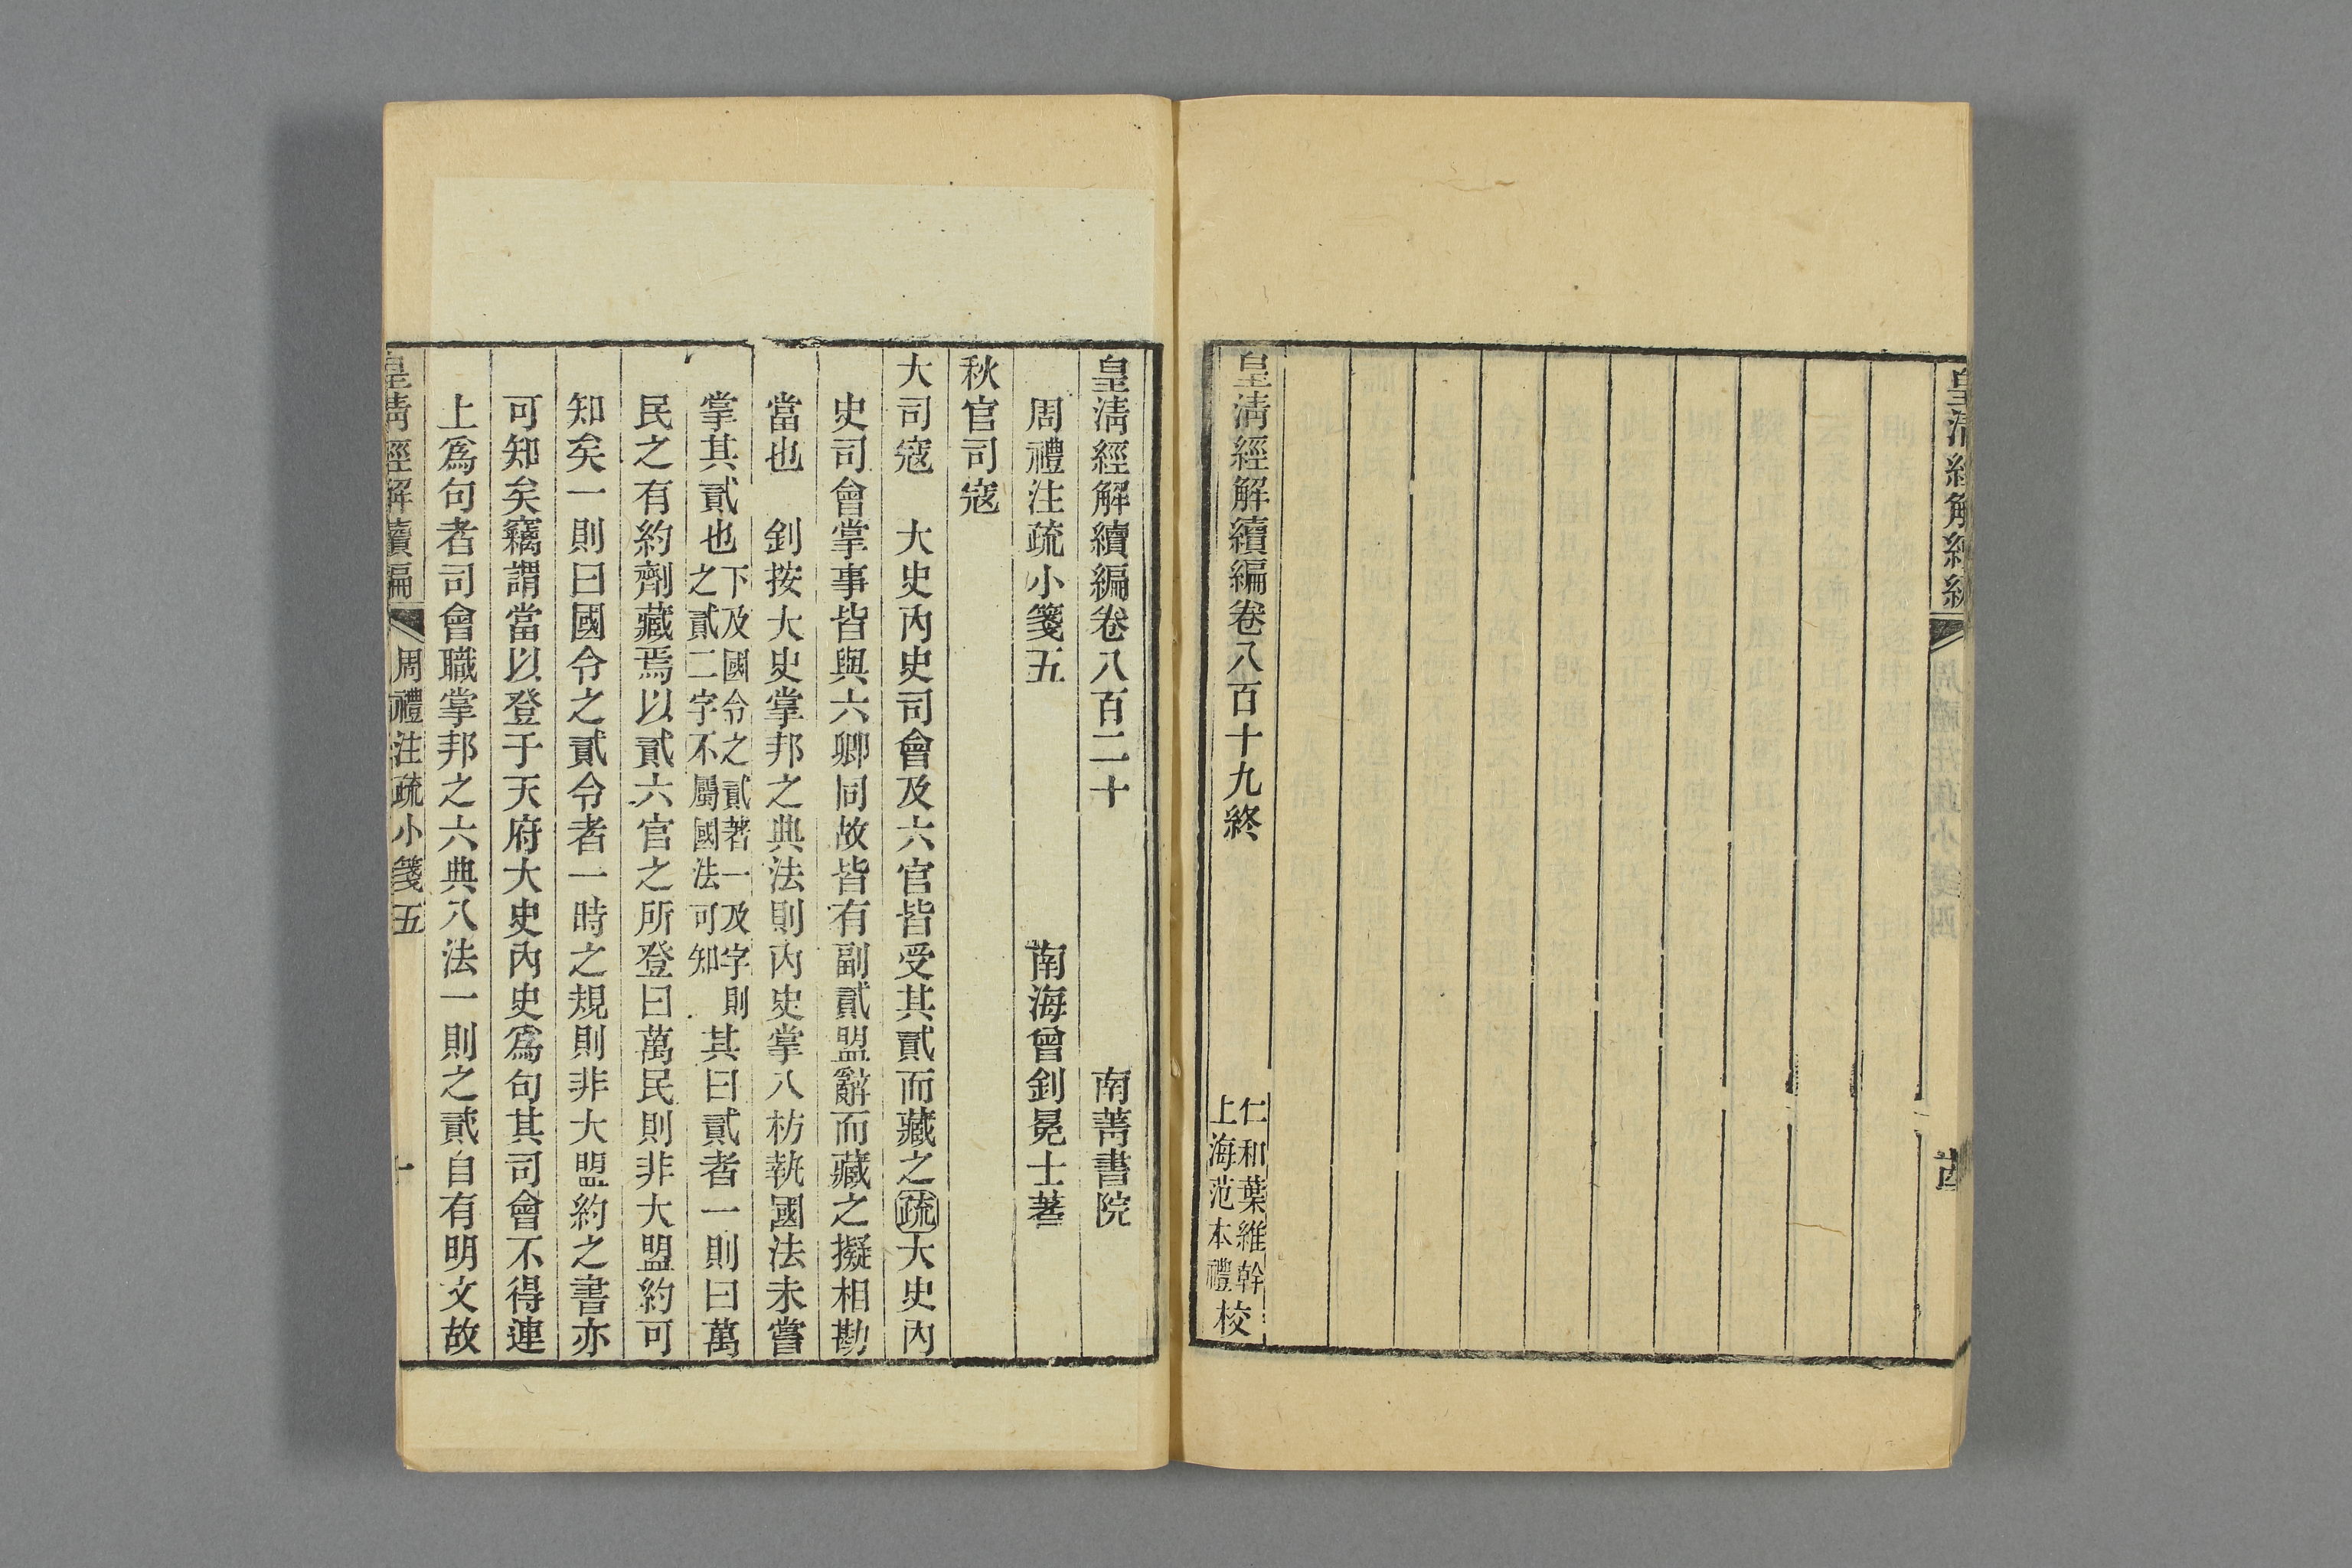 皇清經解續編卷八百十九終
仁和葉維幹
上海范本禮
校
皇清經解續編卷八百二十
南菁書院
周禮注疏小箋五
南海曾釗冕士著
秋官司寇
大司寇　大史內史司會及六官皆受其貳而藏之疏大史內
史司會掌事皆與六卿同故皆有副貳盟辭而藏之擬相勘
當也　釗按大史掌邦之典法則內史掌八枋執國法未嘗
掌其貳也
下及國令之貳著一及字則
之貳二字不屬國法可知
其曰貳者一則曰萬
民之有約劑藏焉以貳六官之所登曰萬民則非大盟約可
知矣一則曰國令之貳令者一時之規則非大盟約之書亦
可知矣竊謂當以登于天府大史內史爲句其司會不得連
上爲句者司會職掌邦之六典八法一則之貳自有明文故
皇清經解續編
周禮注疏小箋五
一